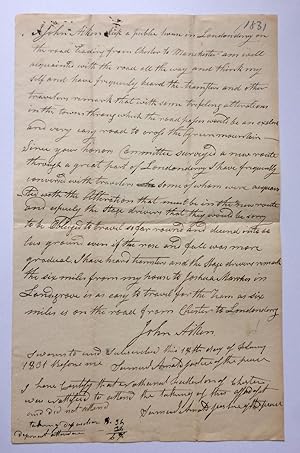 1831
I John Aiken keep a public house in Londonderry on
the road leading from Chester to Manchester am well
acquainted with the road all the way and think my
self and have frequently heard the teamsters and other
travelers remark that with some trifeling alterations
in the town through which the road passes would be an excelent
and very easy road to cross the Green mountain
Since your honors Committee surveyed a new route
through a great part of Londonderry I have frequently
conversed with travelers some of whom were acquain
ted with the alteration that must be in the new route
and the Stage drivers that they would be sorry
to be obliged to travel so far round and
less ground even if the rise and falls was more
gradual I have heard teamsters and the stage drivers remark
the six miles from my house to Joshua
in Landsgrove is as easy to travel for the team as six
miles is on the road from Chester to Londonderry
John Aiken
Sworn to and Subscribed this 18th day of
1831 Before me Samuel Justice of the peace
I here Certify that of Chester
was notified to attend the taking of this
and did not attend
Samuel Justice of the peace
taking deposition
deponent attendance